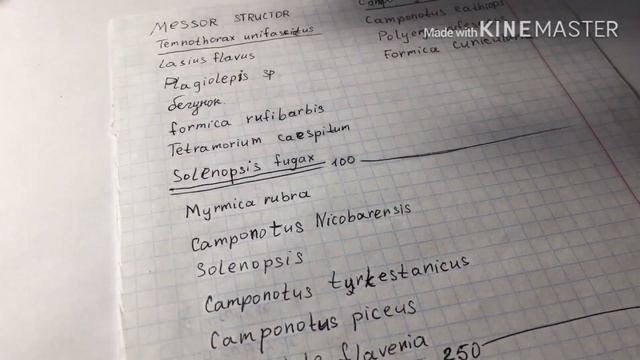 Messor structor
Temnothorax unifasciatus
Lasius flavus
Plagiolepis sp
бегунок
formica rufibarbis
Tetramorium caespitum
Solenopsis fugax 100
Myrmica rubra
Camponotus Nicobarensis
Solenopsis
Camponotus tyrkestanicus
Camponotus piceus
flavenia 250
Camponotus
Formica
Made with KINEMASTER